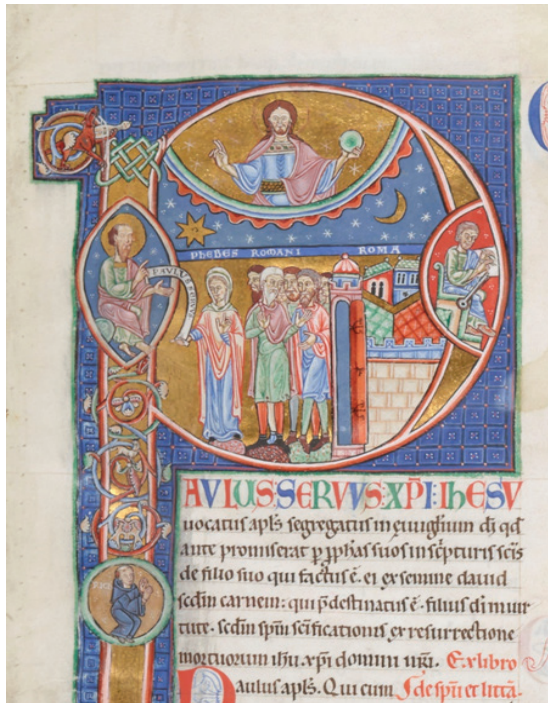 PAVLVS SERVVS
PHEBES ROMANI ROMA
AVLVS: SERVVS: XP̅I: IHESV
uocatus apl̅s segregatus in euu̅gl̅ium di̅ qd̅
ante promiserat p̱ p̱ph̅as suos in sc̅pturis sc̅is
de filio suo qui factus ē. ei ex semine dauid
scdm̅ carnem: qui p̅destinatus ē. filius di̅ in uir
tute. scdm̅ sp̅m sc̅ificationis ex resurrectione
mortuorum ihu̅ xp̅i domini nr̅i. Ex libro
Paulus apl̅s. Qui cum S de sp̅u et litt̅a.